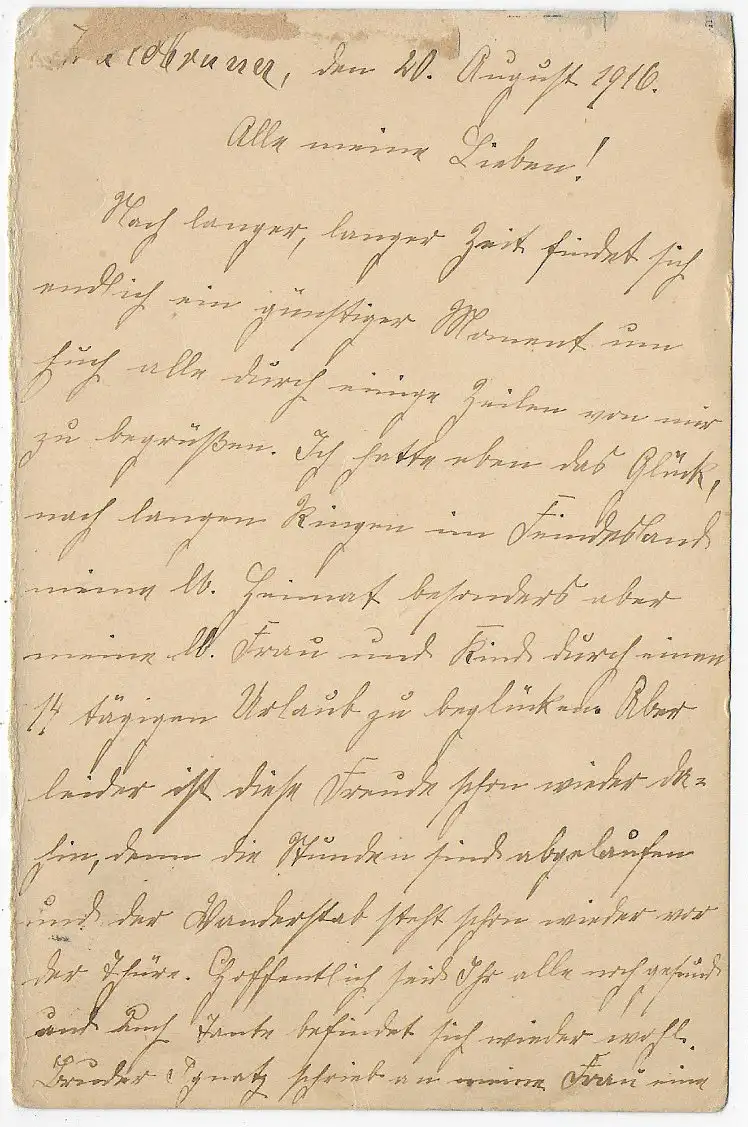 den 20. August 1916.
Alle meine Lieben!
Nach langer, langer Zeit findet sich
endlich ein günstiger Moment um
Euch alle durch einige Zeilen von mir
zu begrüßen. Ich hatte eben das Glück,
nach langen Ringen im Feindesland
meine lb. Heimat besonders aber
meine lb. Frau und Kind durch einen
14 tägigen Urlaub zu beglücken. Aber
leider ist diese Freude schon wieder da=
hin, denn die Stunden sind abgelaufen
und der Wanderstab steht schon wieder vor
der Thüre. Hoffentlich seid Ihr alle noch gesund
und auch Tante befindet sich wieder wohl.
Bruder Ignatz schrieb an meine Frau eine